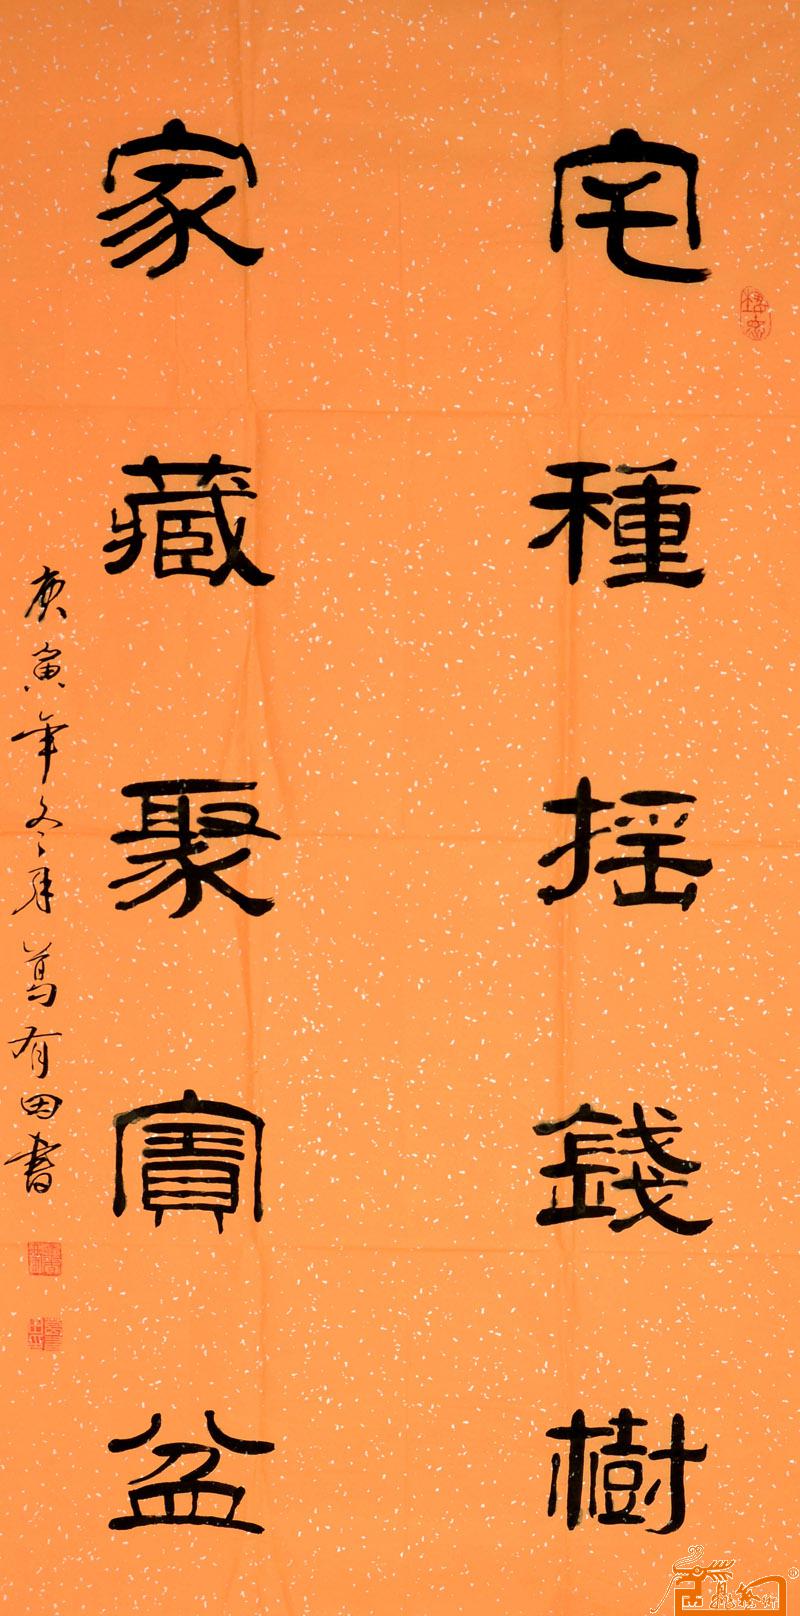 宅種摇錢樹
家藏聚寳盆
庚寅年冬月葛有田書